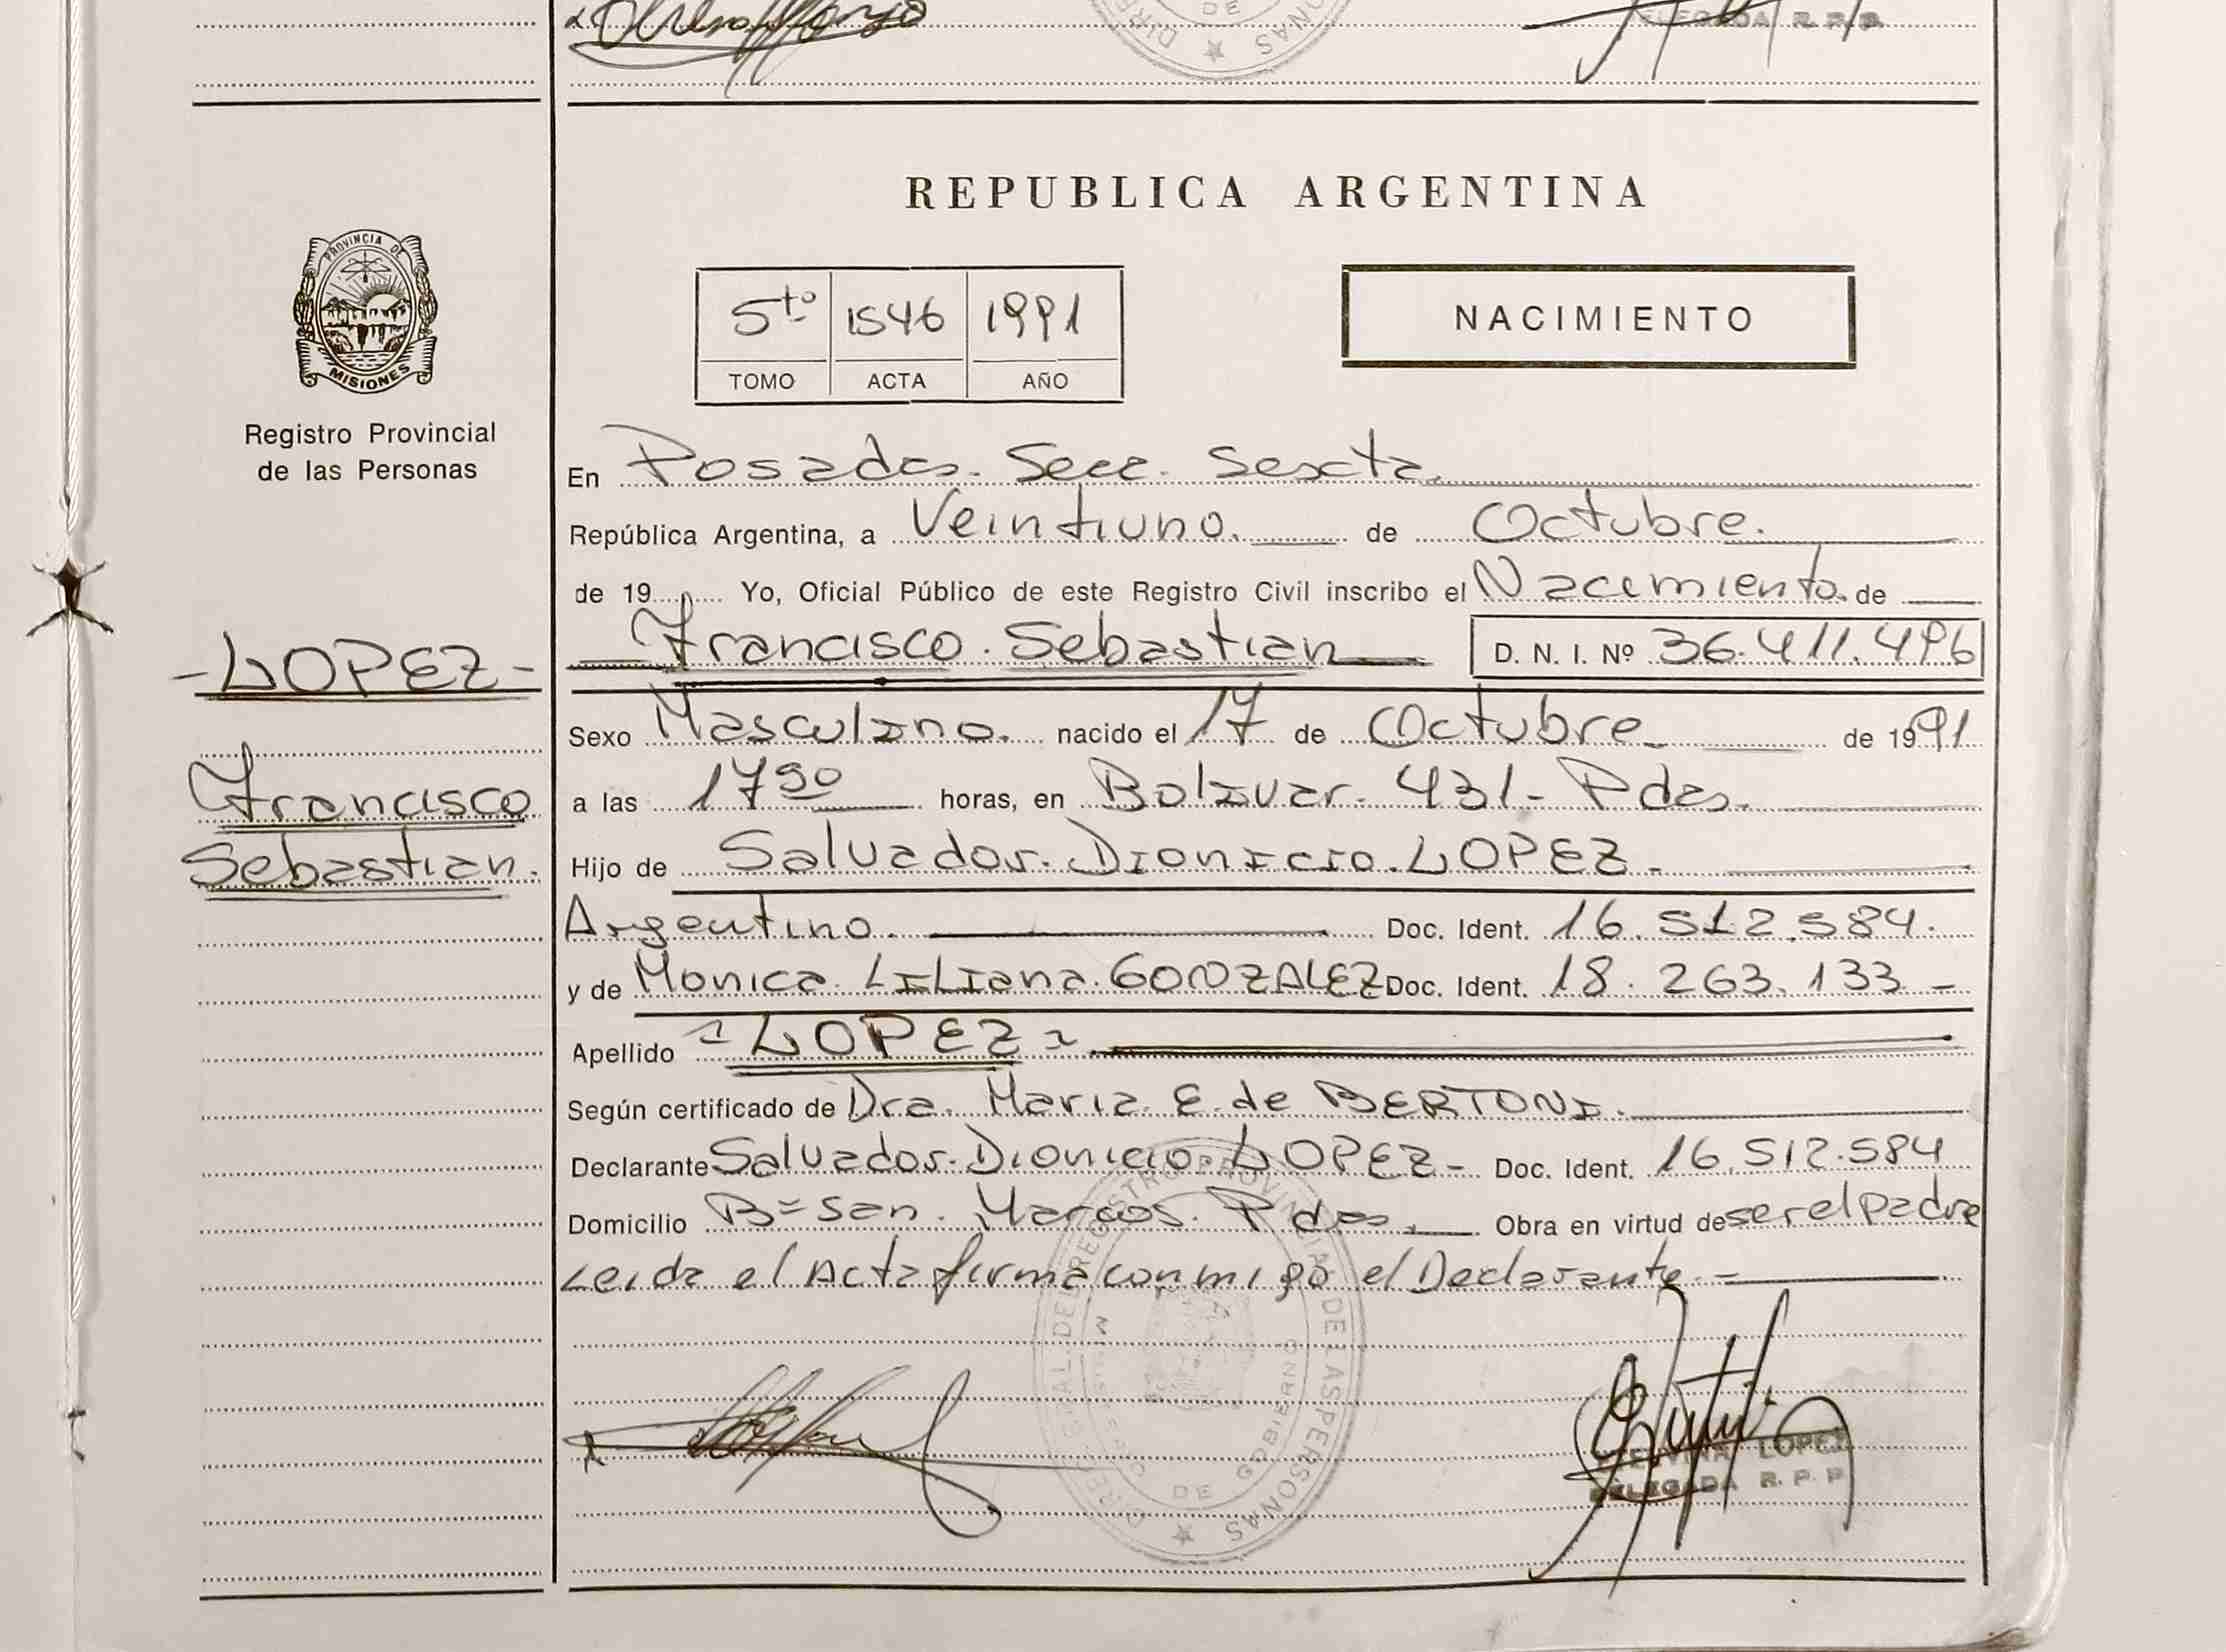 DELEGADA R. P. P.
DE
REPUBLICA ARGENTINA
PROVINCIA DE
MISIONES
Registro Provincial
de las Personas
5to 1546 1991
TOMO ACTA AÑO
NACIMIENTO
En Posadas. Secc. Sexta.
República Argentina, a Veintiuno. de Octubre.
de 19 Yo, Oficial Público de este Registro Civil inscribo el Nacimiento. de
- LOPEZ -
Francisco. Sebastian D. N. I. Nº 36.411.496
Sexo Masculino. nacido el 17 de Octubre de 1991
Francisco
Sebastian.
a las 17 30 horas, en Bolivar. 431- Pdas.
Hijo de Salvador. Dionicio. LOPEZ -
Argentino. Doc. Ident. 16.512.584.
y de Monica. Liliana. GONZALEZ Doc. Ident. 18.263.133 -
Apellido - LOPEZ -
Según certificado de Dra. Maria. E. de BERTONI.
Declarante Salvador. Dionicio LOPEZ - Doc. Ident. 16.512.584
Domicilio Bº San. Marcos. Pdas. Obra en virtud de ser el padre
Leida el Acta firma conmigo el Declarante. =
DEL REGISTRO PROVINCIAL DE LAS PERSONAS
DE GOBIERNO
LOPEZ
DELEGADA R. P. P.